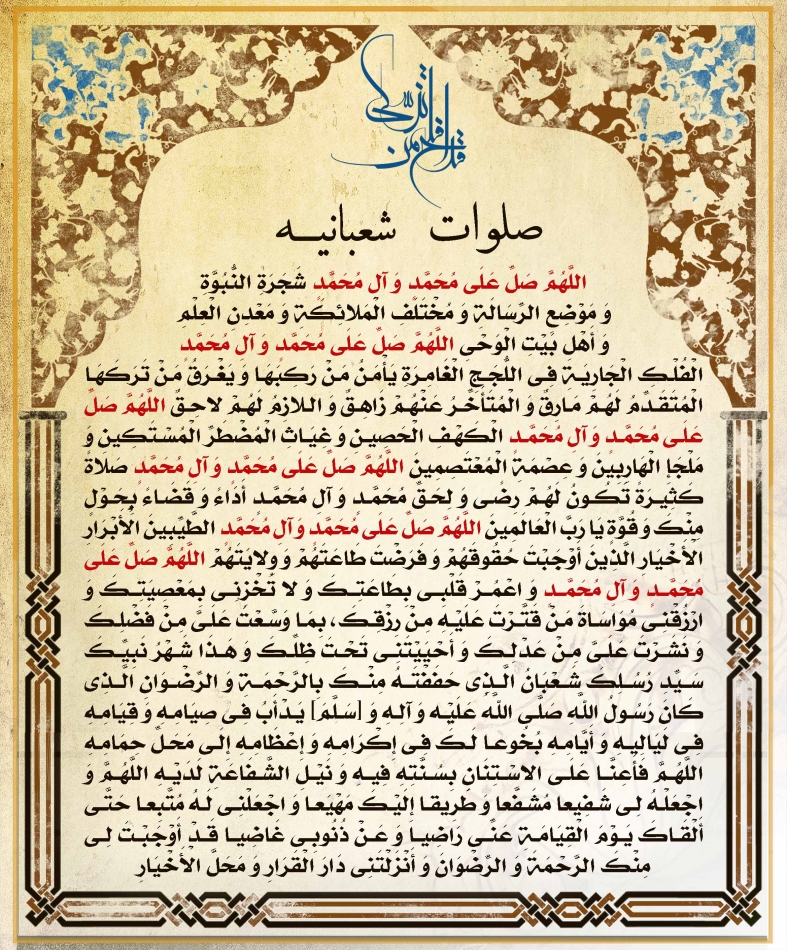 قد افلح من تزکی
صلوات شعبانیه
اللَّهُمَّ صَلِّ عَلَى مُحَمَّد وَ آلِ مُحَمَّد شَجَرَةِ النُّبُوَّةِ
وَ مَوْضِعِ الرِّسالَةِ وَ مُخْتَلَفِ الْمَلائِكَةِ وَ مَعْدِنِ الْعِلْمِ
وَ أَهْلِ بَيْتِ الْوَحْىِ اللَّهُمَّ صَلِّ عَلى مُحَمَّد وَ آلِ مُحَمَّد
الْفُلْكِ الْجارِيَةِ فِى اللُّجَجِ الْغامِرَةِ يَأْمَنُ مَنْ رَكِبَها وَ يَغْرَقُ مَنْ تَرَكَها
الْمُتَقَدِّمُ لَهُمْ مارِقٌ وَ الْمُتَأَخِّرُ عَنْهُمْ زاهِقٌ وَ اللازِمُ لَهُمْ لاحِقٌ اللَّهُمَّ صَلِّ
عَلى مُحَمَّد وَ آلِ مُحَمَّد الْكَهْفِ الْحَصِينِ وَ غِيَاثِ الْمُضْطَرِّ الْمُسْتَكِينِ وَ
مَلْجَإِ الْهارِبِينَ وَ عِصْمَةِ الْمُعْتَصِمِينَ اللَّهُمَّ صَلِّ عَلى مُحَمَّد وَ آلِ مُحَمَّد صَلاةً
كَثِيرَةً تَكُونُ لَهُمْ رِضًى وَ لِحَقِّ مُحَمَّد وَ آلِ مُحَمَّد أَدَاءً وَ قَضَاءً بِحَوْلٍ
مِنْكَ وَ قُوَّةٍ يا رَبَّ الْعالَمِينَ اللَّهُمَّ صَلِّ عَلى مُحَمَّد وَ آلِ مُحَمَّد الطَّيِّبِينَ الْأَبْرَارِ
الْأَخْيارِ الَّذِينَ أَوْجَبْتَ حُقُوقَهُمْ وَ فَرَضْتَ طاعَتَهُمْ وَ وِلايَتَهُمْ اللَّهُمَّ صَلِّ عَلى
مُحَمَّد وَ آلِ مُحَمَّد وَ اعْمُرْ قَلْبِى بِطَاعَتِكَ وَ لا تُخْزِنِى بِمَعْصِيَتِكَ وَ
ارْزُقْنِى مُوَاسَاةَ مَنْ قَتَّرْتَ عَلَيْهِ مِنْ رِزْقِكَ، بِمَا وَسَّعْتَ عَلَىَّ مِنْ فَضْلِكَ
وَ نَشَرْتَ عَلَىَّ مِنْ عَدْلِكَ وَ أَحْيَيْتَنِى تَحْتَ ظِلِّكَ وَ هَذا شَهْرُ نَبِيِّكَ
سَيِّدِ رُسُلِكَ شَعْبَانُ الَّذِى حَفَفْتَهُ مِنْكَ بِالرَّحْمَةِ وَ الرِّضْوَانِ الَّذِى
كانَ رَسُولُ اللَّهِ صَلَّى اللَّهُ عَلَيْهِ وَ آلِهِ وَ [سَلَّمَ] يَدْأَبُ فِى صِيامِهِ وَ قِيامِهِ
فِى لَيَالِيهِ وَ أَيَّامِهِ بُخُوعا لَكَ فِى إِكْرَامِهِ وَ إِعْظَامِهِ إِلى مَحَلِّ حِمَامِهِ
اللَّهُمَّ فَأَعِنَّا عَلَى الاسْتِنَانِ بِسُنَّتِهِ فِيهِ وَ نَيْلِ الشَّفَاعَةِ لَدَيْهِ اللَّهُمَّ وَ
اجْعَلْهُ لِى شَفِيعا مُشَفَّعا وَ طَرِيقا إِلَيْكَ مَهْيَعا وَ اجْعَلْنِى لَهُ مُتَّبِعا حَتَّى
أَلْقَاكَ يَوْمَ الْقِيَامَةِ عَنِّى رَاضِيا وَ عَنْ ذُنُوبِى غَاضِيا قَدْ أَوْجَبْتَ لِى
مِنْكَ الرَّحْمَةَ وَ الرِّضْوَانَ وَ أَنْزَلْتَنِى دَارَ الْقَرَارِ وَ مَحَلَّ الْأَخْيَارِ